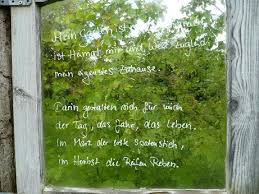 Mein Garten ist
ist Heimat mir und Welt zugleich
mein eigenstes Zuhause.
Darin gestalten sich für mich
der Tag, das Jahr, das Leben.
im März der erste Spatenstich,
im Herbst die Reifen Reben.